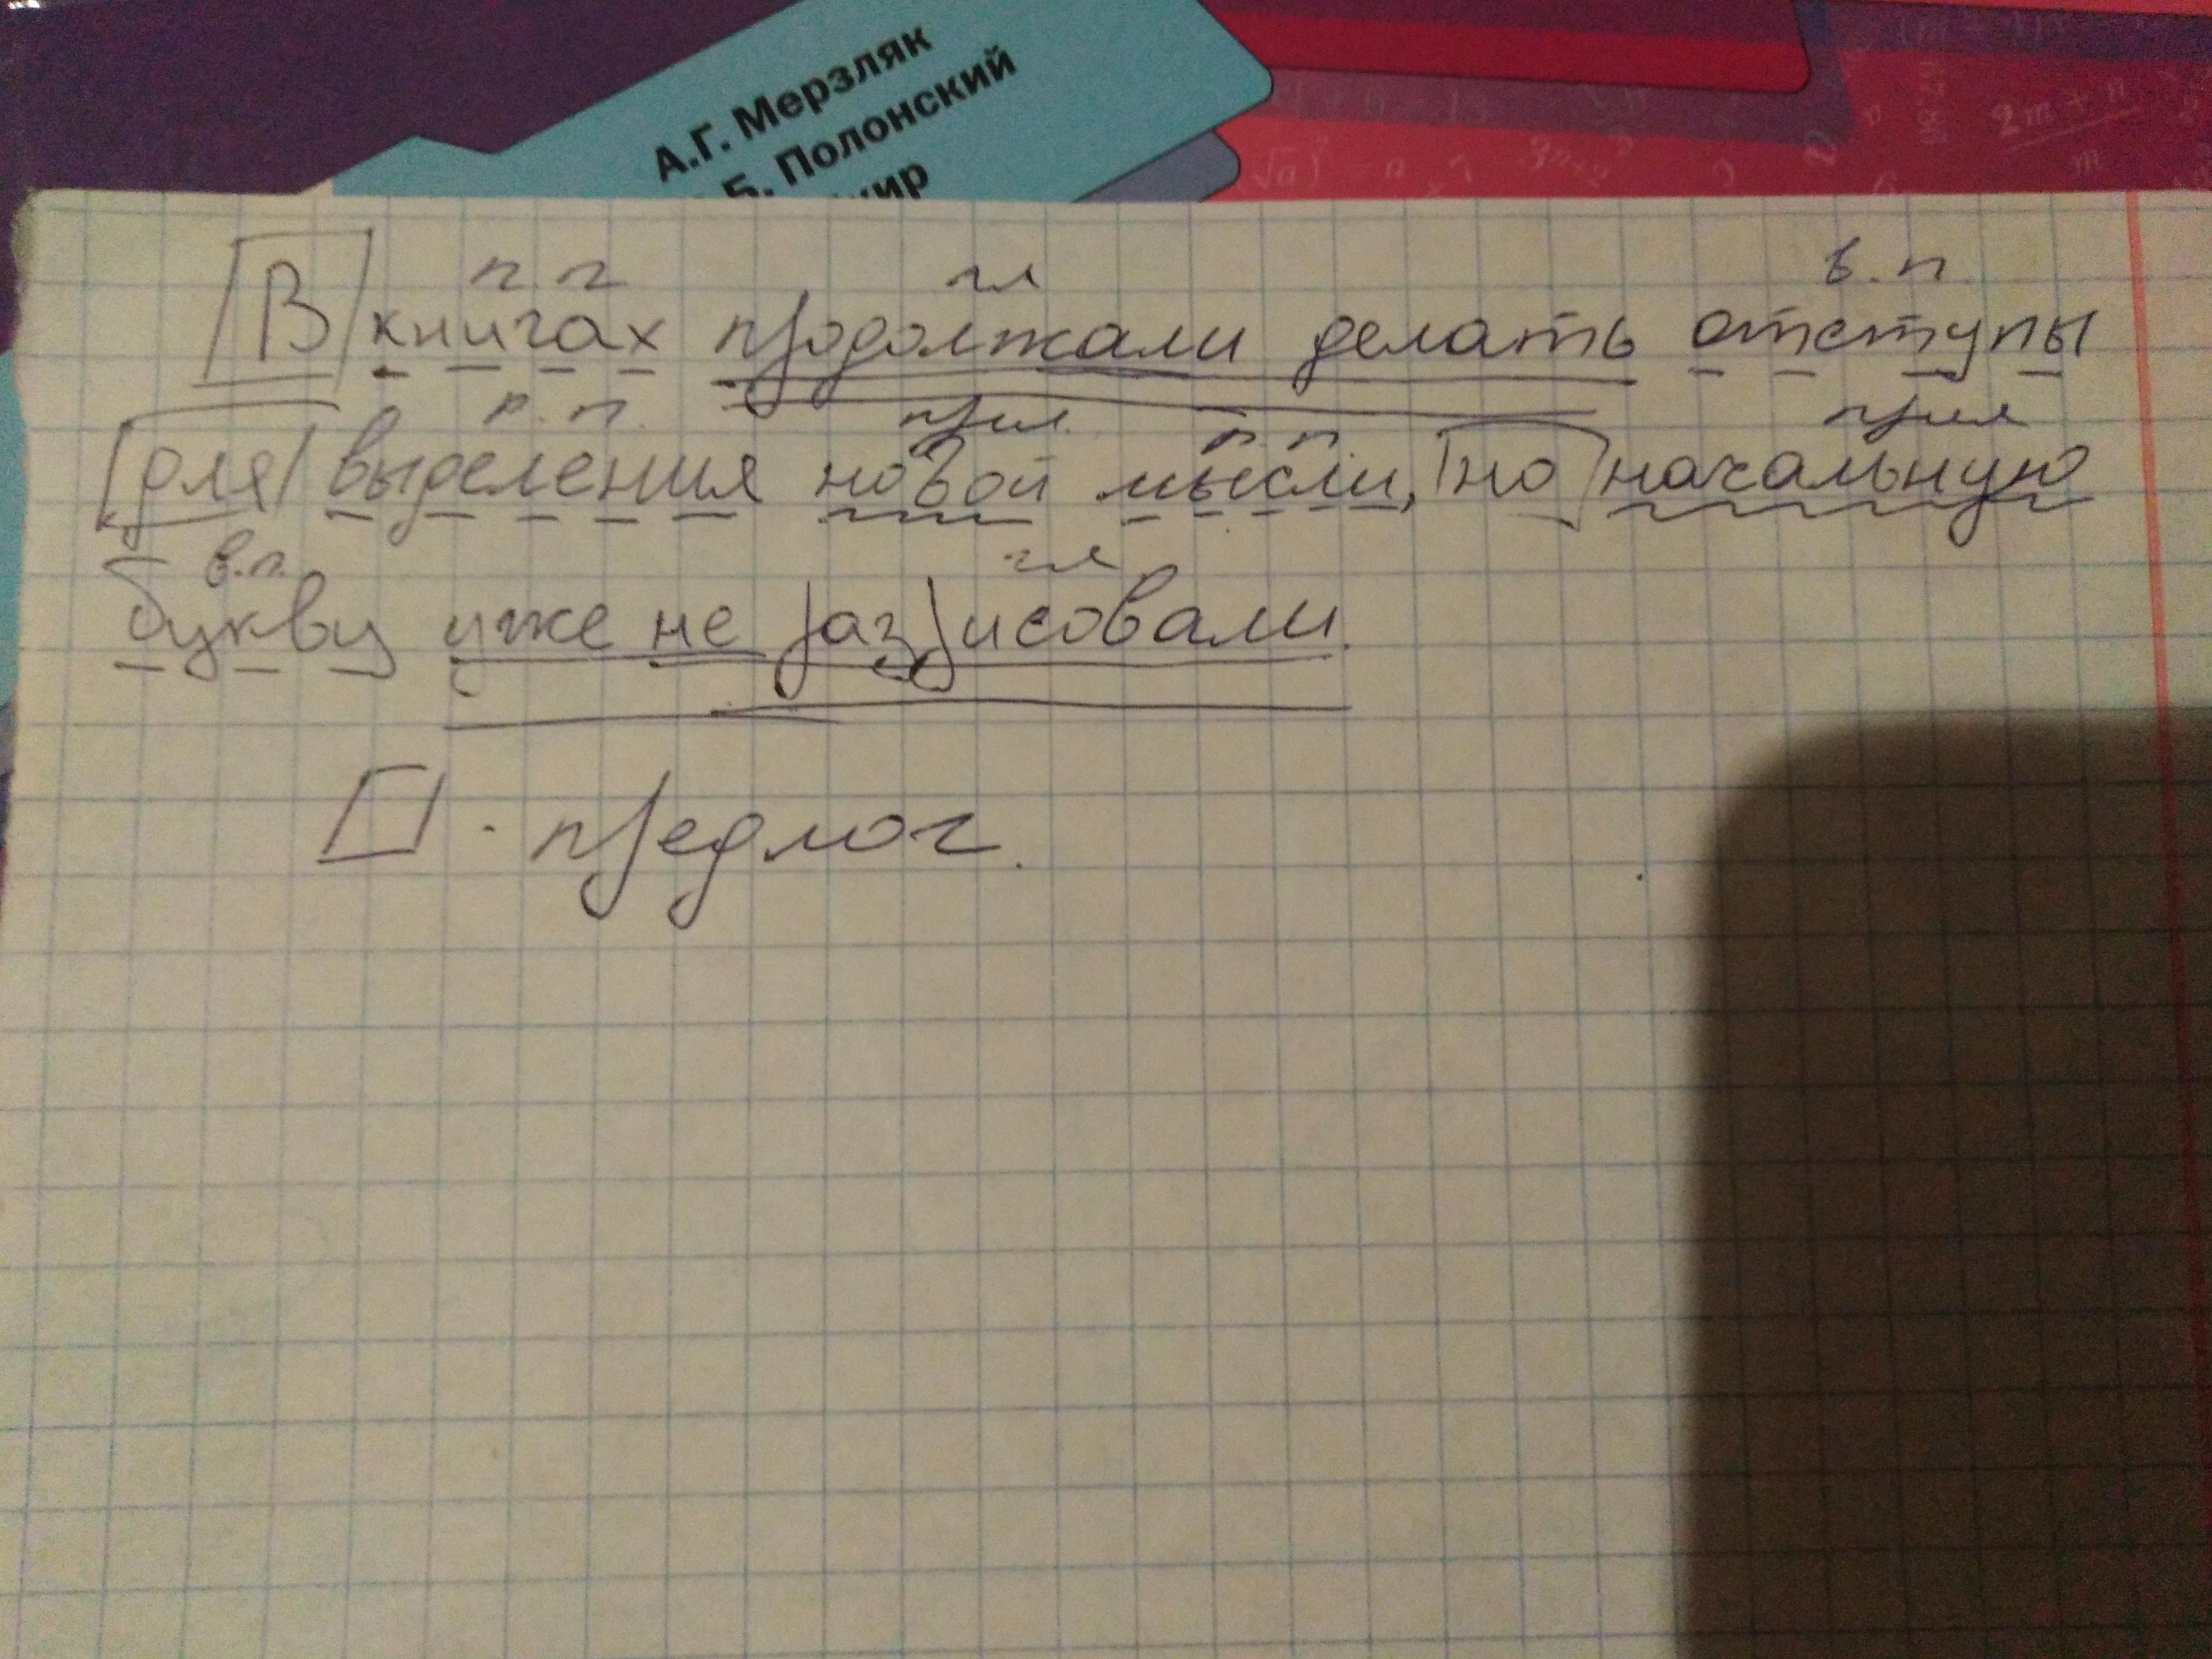 А.Г. Мерзляк
Б. Полонский
п. п
гл
в. п
В книгах продолжали делать отступы
р. п.
прил.
п. п
прил
для выделения новой мысли, но начальную
в.п.
гл
букву уже не разрисовали.
- предлог.
2m + n
m